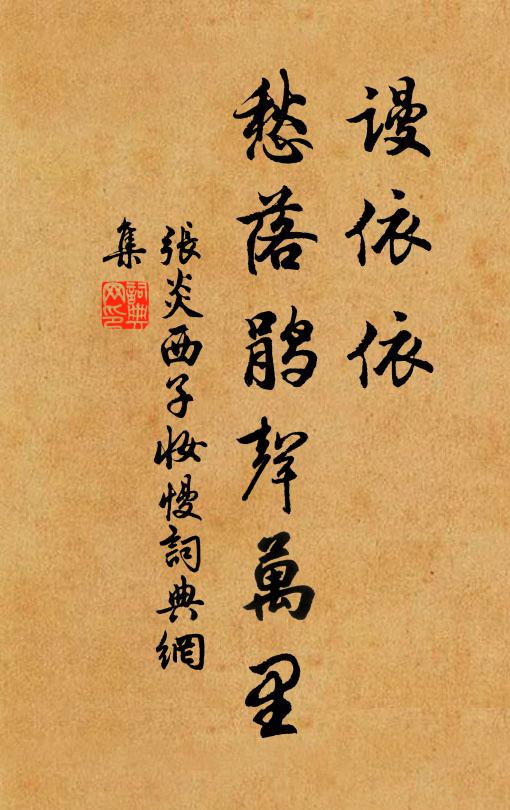 謾依依
愁落鵑聲萬里
張炎西子妝慢詞典網
集
詞典網印